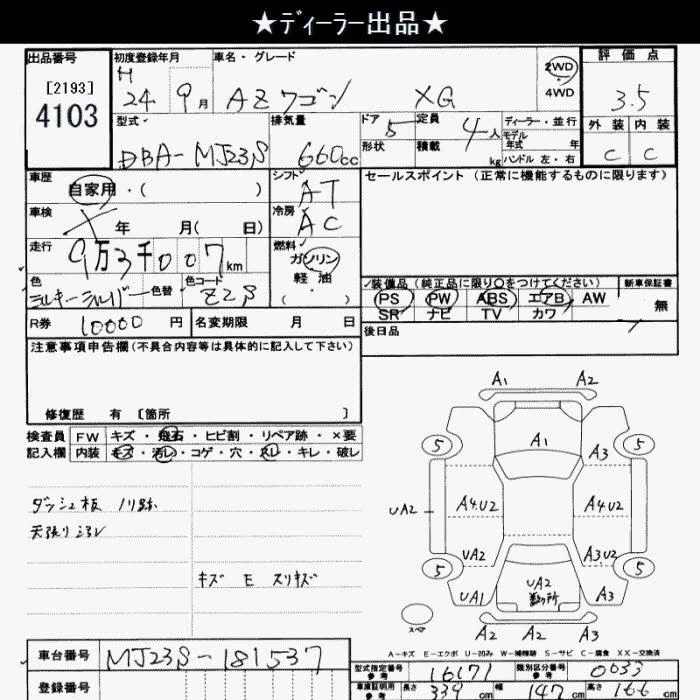 ★ディーラー出品★
出品番号
[2193]
4103
初度登録年月
H
24 9月
車名・グレード
AZワゴン XG
2WD
4WD
評価点
3.5
外装 内装
C C
型式
DBA-MJ23S
排気量
660cc
ドア 5
形状
定員 4人
積載 kg
ディーラー・並行
モデル
年式 年
ハンドル 左・右
車歴
自家用・( )
シフト
AT
セールスポイント(正常に機能するものに限ります)
車検
年 月( 日)
冷房
AC
走行
9万3千007km
燃料
ガソリン
軽油
( ・ )
色
ミルキーシルバー
色替
色コード
Z2S
装備品(純正品に限り○をつけてください)
新車保証書
PS PW ABS エアB AW 無
SR ナビ TV カワ
R券 10000円
名変期限 月 日
後日品
注意事項申告欄(不具合内容等は具体的に記入して下さい)
修復歴 有 [箇所 ]
検査員
記入欄
FW キズ・飛石・ヒビ割・リペア跡・×要
内装 キズ・汚レ・コゲ・穴・スレ・キレ・破レ
ダッシュ板 ノリ跡
キズ E スリキズ
A1 A2
A1
5 A3 5
UA2 A4.U2 A4.U2
UA2 A3U2
5 5
UA1 UA2 A3
数ヶ所
スペア
A2 A2 A3
A-キズ E-エクボ U-凹み W-補修跡 S-サビ C-腐食 XX-交換済
車台番号 MJ23S-181537
登録番号
型式指定番号
参考
16171
類別区分番号
参考
0033
車庫証明用
参考
長さ 339cm 幅 147cm 高さ 166cm